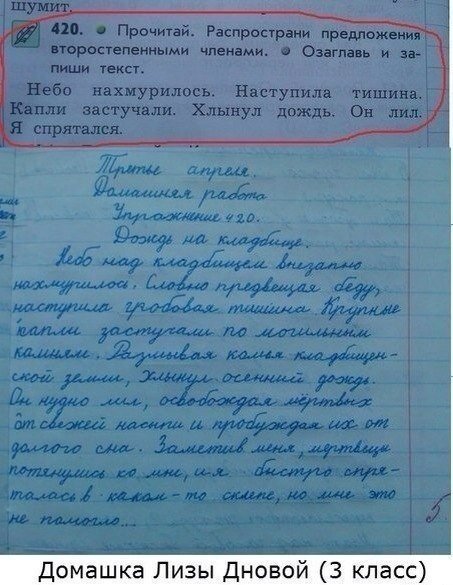 шумит.
420. ● Прочитай. Распространи предложения
второстепенными членами. ● Озаглавь и за-
пиши текст.
Небо нахмурилось. Наступила тишина.
Капли застучали. Хлынул дождь. Он лил.
Я спрятался.
Третье апреля.
Домашняя работа
Упражнение 420.
Дождь на кладбище.
Небо над кладбищем внезапно
нахмурилось. Словно предвещая беду,
наступила гробовая тишина. Крупные
капли застучали по могильным
камням. Размывая комья кладбищен-
ской земли, хлынул осенний дождь.
Он нудно лил, освобождая мёртвых
от свежей насыпи и пробуждая их от
долгого сна. Заметив меня, мертвецы
потянулись ко мне, и я быстро спря-
талась в каком-то склепе, но мне это
не помогло...
5
Домашка Лизы Дновой (3 класс)